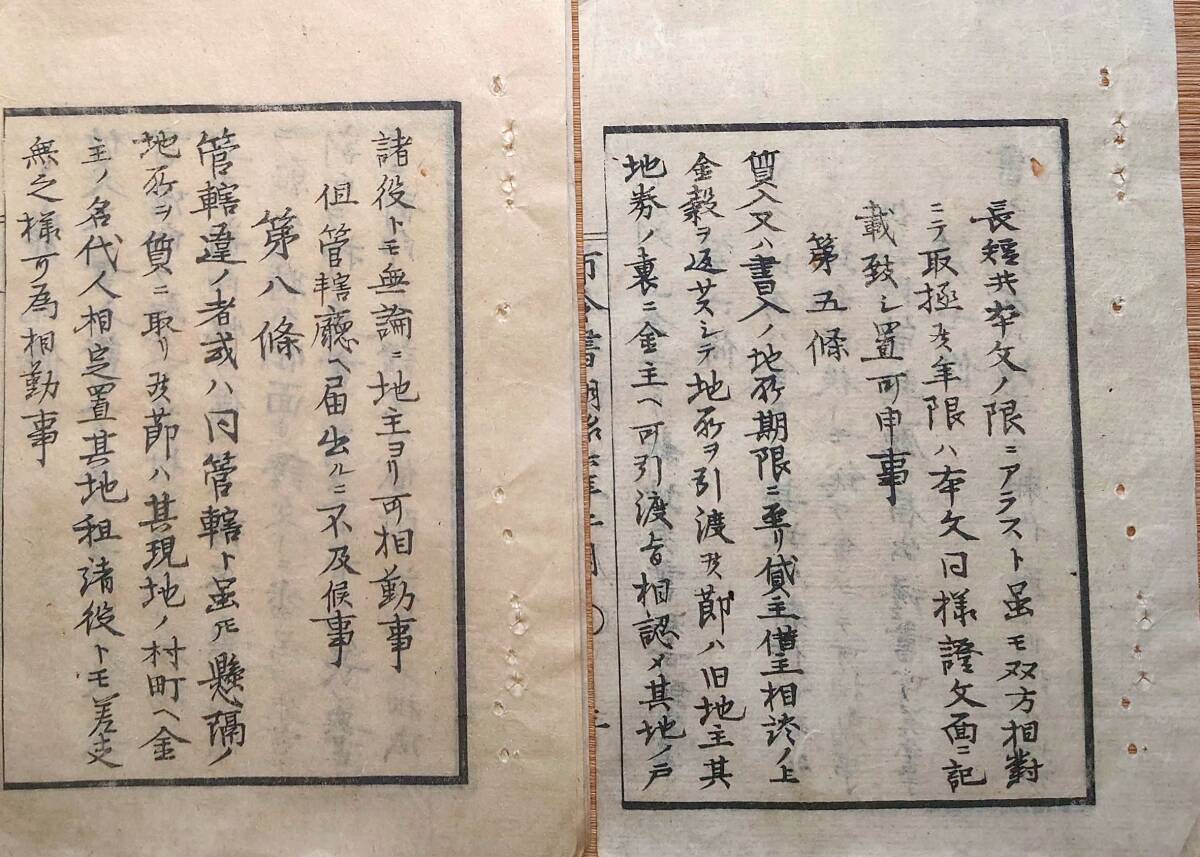 長短共本文ノ限ニアラスト虽モ双方相對
ニテ取極メ候年限ハ本文同様證文面ニ記
載致シ置可申事
第五條
質入又ハ書入ノ地所期限ニ至リ貸主借主相談ノ上
金穀ヲ返サスシテ地所ヲ引渡候節ハ旧地主其
地券ノ裏ニ金主ヘ可引渡旨相認メ其地ノ戸
諸役トモ無論ニ地主ヨリ可相勤事
但管轄廳ヘ届出ルニ不及候事
第八條
管轄違ノ者或ハ同管轄ト虽𪜈懸隔ノ
地所ヲ質ニ取リ候節ハ其現地ノ村町ヘ金
主ノ名代人相定置其地租諸役トモ差支
無之様可為相勤事